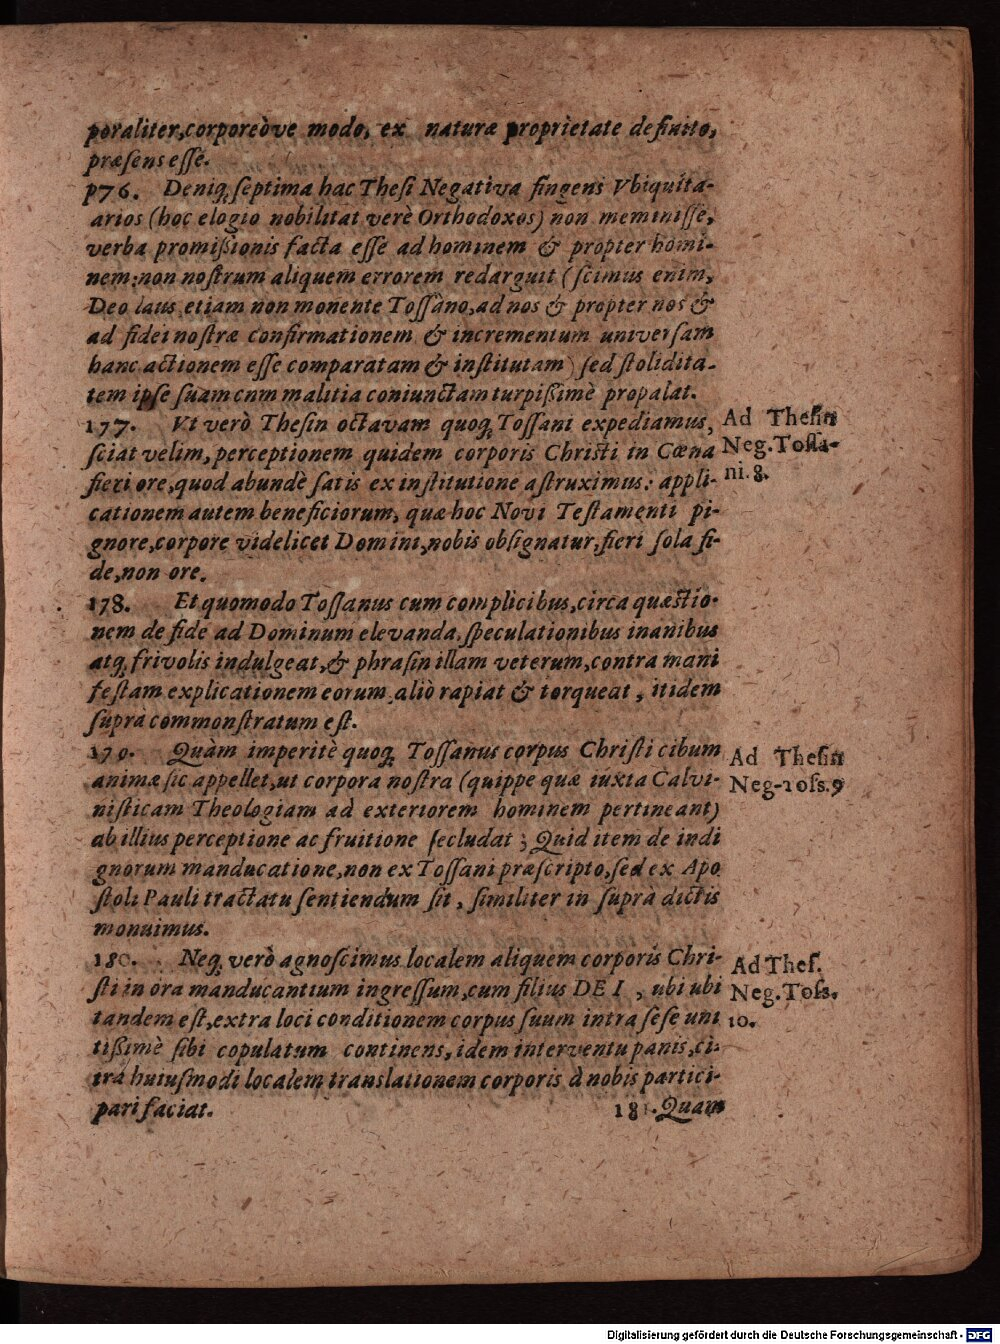 poraliter, corporeòve modo, ex naturæ proprietate definito,
præsens esse.
p76. Deniq; septima hac Thesi Negativa fingens Vbiquita-
arios (hoc elogio nobilitat verè Orthodoxos) non meminisse,
verba promißionis facta esse ad hominem & propter homi-
nem: non nostrum aliquem errorem redarguit (scimus enim,
Deo laus etiam non monente Tossano, ad nos & propter nos &
ad fidei nostræ confirmationem & incrementum universam
hanc actionem esse comparatam & institutam) sed stolidita-
tem ipse suam cnm malitia coniunctam turpißimè propalat.
177. Vt verò Thesin octavam quoq; Tossani expediamus,
Ad Thesin
Neg. Tossa-
ni. 8.
sciat velim, perceptionem quidem corporis Christi in Cœna
fieri ore, quod abundè satis ex institutione astruximus: appli-
cationem autem beneficiorum, quæ hoc Novi Testamenti pi-
gnore, corpore videlicet Domini, nobis obsignatur, fieri sola fi-
de, non ore.
178. Et quomodo Tossanus cum complicibus, circa quæstio-
nem de fide ad Dominum elevanda, speculationibus inanibus
atq; frivolis indulgeat, & phrasin illam veterum, contra mani
festam explicationem eorum aliò rapiat & torqueat, itidem
suprà commonstratum est.
170. Quàm imperitè quoq; Tossanus corpus Christi cibum
Ad Thesin
Neg-Toss. 9
animæ sic appellet, ut corpora nostra (quippe quæ iuxta Calvi-
nisticam Theologiam ad exteriorem hominem pertineant)
ab illius perceptione ac fruitione secludat; Quid item de indi
gnorum manducatione, non ex Tossani præscripto, sed ex Apo
stoli Pauli tractatu sentiendum sit, similiter in suprà dictis
monuimus.
180. Neq; verò agnoscimus localem aliquem corporis Chri-
Ad Thes.
Neg. Toss.
10.
sti in ora manducantium ingressum, cum filius DE I, ubi ubi
tandem est, extra loci conditionem corpus suum intra sese uni
tißimè sibi copulatum continens, idem interventu panis, ci-
tra huiusmodi localem translationem corporis à nobis partici-
pari faciat.
181. Quam
Digitalisierung gefördert durch die Deutsche Forschungsgemeinschaft - DFG